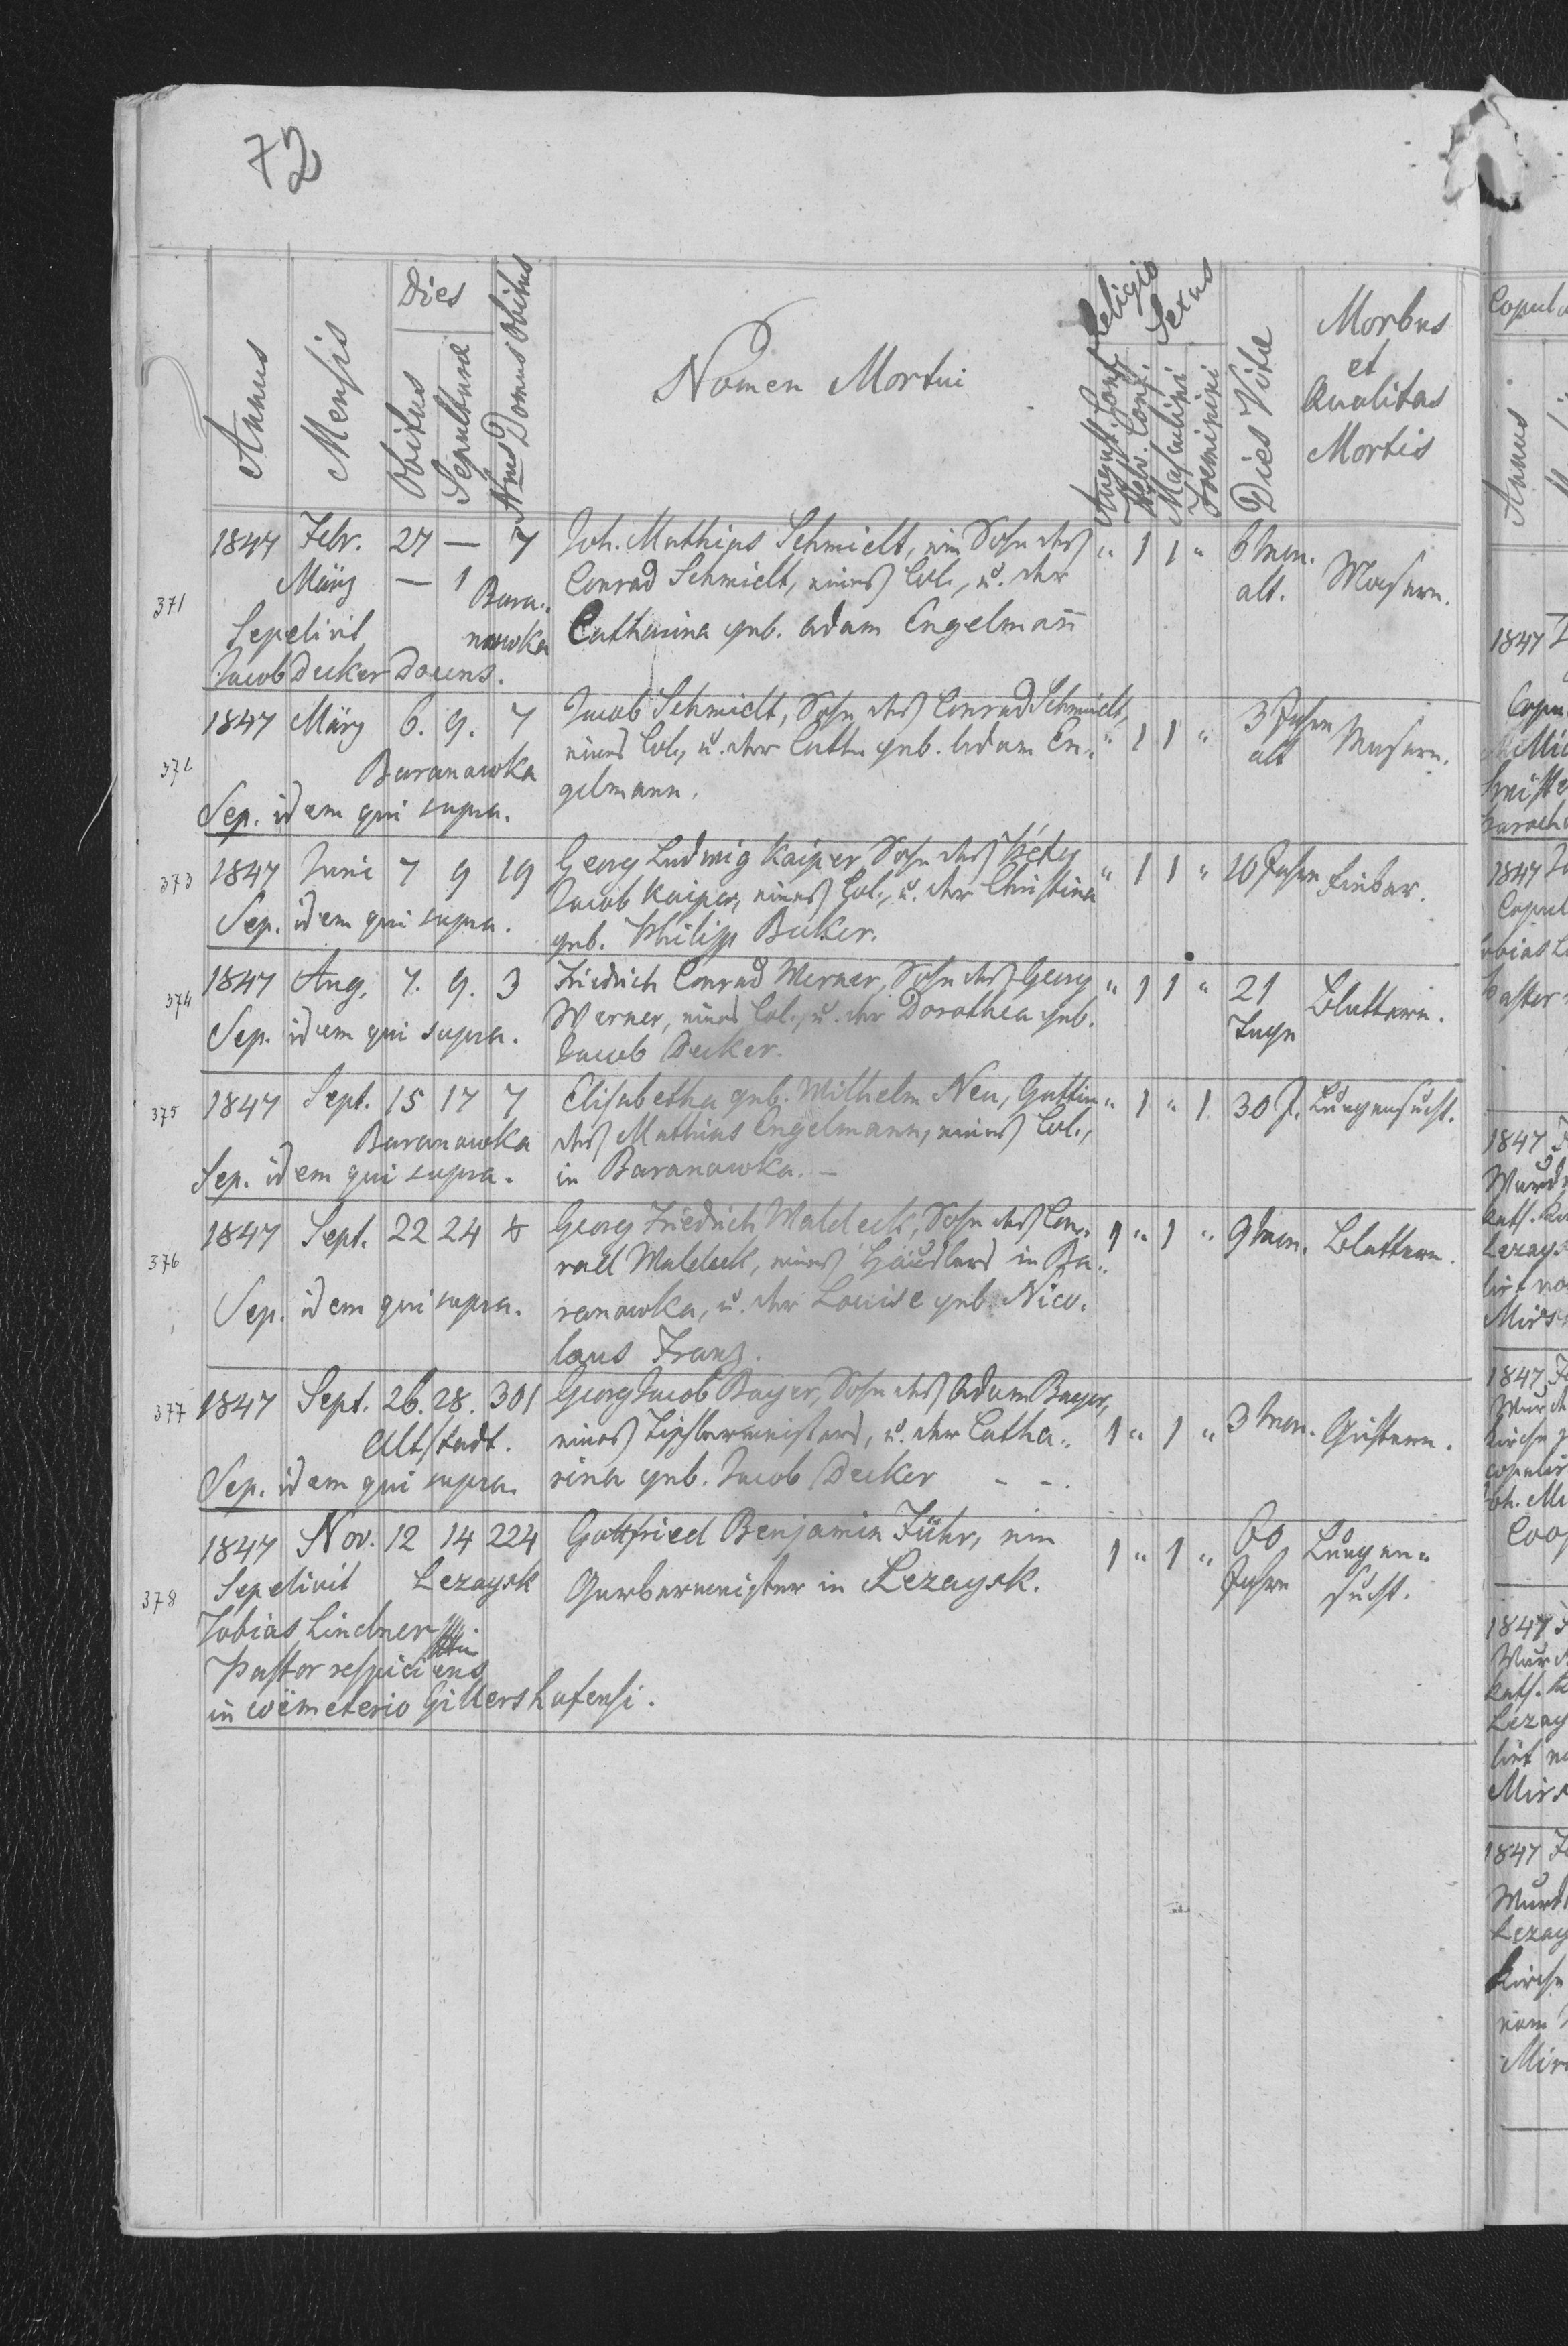 72
Annus Mensis Dies Obitus Sepulturæ Nrus Domus Obitus Nomen Mortui Religio August. Conf. Helv. Conf. Sexus Masculini Foeminini Dies Vitæ Morbus et Qualitas Mortis
371
1847 Febr. 27 — 7 Joh. Mathias Schmidt, ein Sohn des " 1 1 " 6 Mon.
März — 1 Bara- Conrad Schmidt, eines Col., u. der alt. Masern.
Sepelivit nowka Catharina geb. Adam Engelmañ
Jacob Decker Docens.
372
1847 März 6. 9. 7 Jacob Schmidt, Sohn des Conrad Schmidt,
eines Col., u. der Cath. geb. Adam En- " 1 1 " 3 Jahre alt Masern.
Baranowka gelmann.
Sep. idem qui supra.
373
1847 Juni 7 9 19 Georg Ludwig Kaiper, Sohn des
Jacob Kaiper, eines Col., u. der Christina " 1 1 " 10 Jahre Fieber.
Sep. idem qui supra. geb. Philipp Beker.
374
1847 Aug. 7. 9. 3 Friedrich Conrad Werner, Sohn des Georg " 1 1 " 21
Werner, eines Col., u. der Dorothea geb. Tage Blattern.
Sep. idem qui supra. Jacob Decker.
375
1847 Sept. 15 17 7 Elisabetha geb. Wilhelm Neu, Gattin " 1 " 1 30 J. Lungensucht.
Baranowka des Mathias Engelmann, eines Col.,
Sep. idem qui supra. in Baranowka. —
376
1847 Sept. 22 24 Georg Friedrich Waldeck, Sohn des Con-
rad Waldeck, eines Häuslers in Ba- 1 " 1 " 9 Mon. Blattern.
Sep. idem qui supra. ranowka, u. der Louise geb. Nico-
laus Franz.
377
1847 Sept. 26. 28. 301 Georg Jacob Bayer, Sohn des Adam Bayer,
Altstadt. eines Tischlermeisters, u. der Catha- 1 " 1 " 3 Mon.
Sep. idem qui supra. rina geb. Jacob Decker - -.
378
1847 Nov. 12 14 224 Gottfried Benjamin Führ, ein 1 " 1 " 60 Lungen-
Sepelivit Lezaysk Gerbermeister in Lezaysk. Jahre sucht.
Tobias Lindner
Pastor respiciens
in coëmeterio Gillershofensi.
Copula
Annus
1847
1847
1847
1847
Lezays
1847
1847
Lezay
1847
Lezay
Kirche